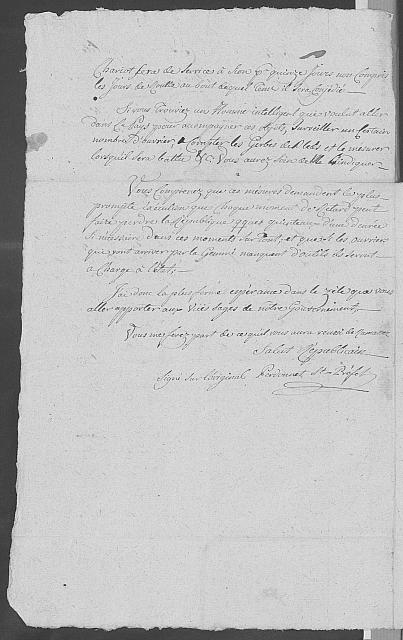 Chariot sera de service à Sion pr quinze jours non Compris
les jours de Route au bout duquel tems il sera Congédié
Si vous Trouviez un Homme intelligent qui voulut aller
dans le Pays pour accompagner ces objets, Surveiller un Certain
nombre d'ouvriers, Compter les Gerbes de bleds et le mesurer
lorsqu'il sera battu &C. Vous aurez soin de me l'indiquer
Vous Comprenez que ces mesures demandent la plus
prompte exécution que Chaque moment de Retard peut
faire perdre à la République qques quintaux d'une denrée
si nécessaire dans ces moments sur Tout, et que si les ouvriers
qui vont arriver par le Gemmi manquent d'outils ils seront
a Charge à l'état.
J'ai donc la plus ferme espérance dans le zèle que vous
aller apporter aux vües sages de notre Gouvernement
Vous me ferez part de ce qu'il vous aura reussi de
Salut Républicain
Signé sur l'original Perdonnet St-Préfet